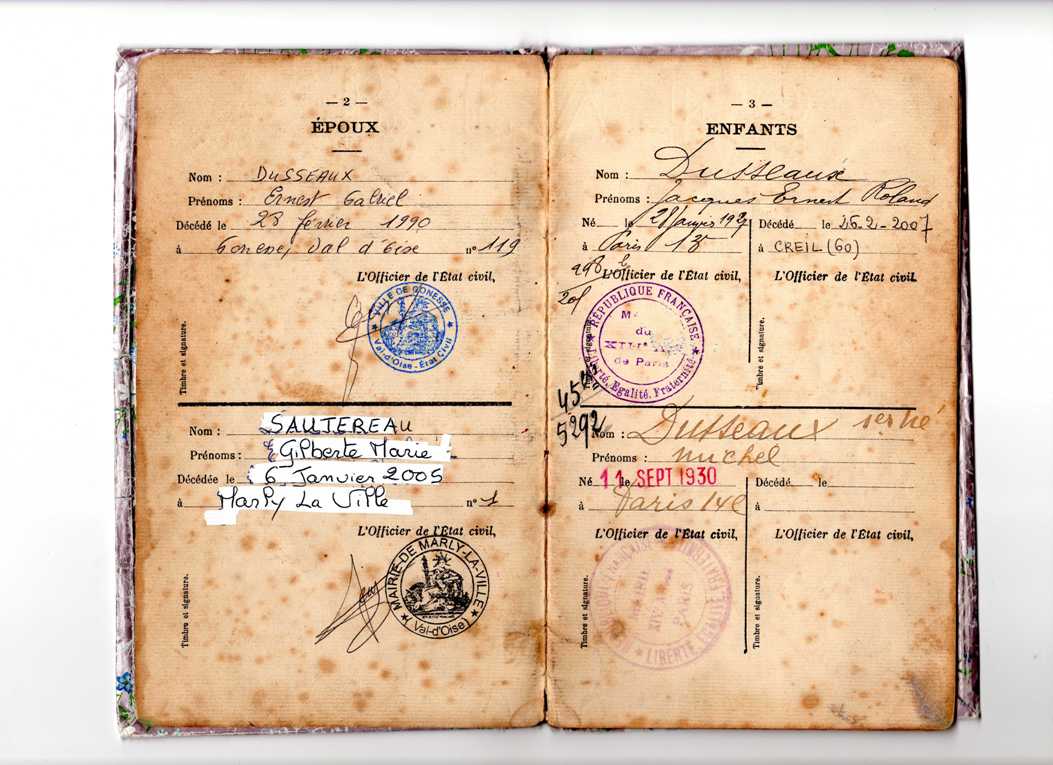 — 2 —
ÉPOUX
Nom : DUSSEAUX
Prénoms : Ernest Gabriel
Décédé le 23 février 1990
à Gonesse, Val d'Oise n° 119
L'Officier de l'État civil,
VILLE DE GONESSE
Val-d'Oise - État Civil
Timbre et signature.
Nom : SAUTEREAU
Prénoms : Gilberte Marie
Décédée le 6 Janvier 2005
à Marly La Ville n° 1
L'Officier de l'État civil,
MAIRIE-DE MARLY-LA-VILLE
(Val-d'Oise)
Timbre et signature.
— 3 —
ENFANTS
Nom : Dusseaux
Prénoms : Jacques Ernest Roland
Né le 28 Janvier Décédé le 26-2-2007
à Paris 13 à CREIL (60)
L'Officier de l'État civil, L'Officier de l'État civil.
RÉPUBLIQUE FRANÇAISE
du
de Paris
Liberté, Egalité, Fraternité
Timbre et signature.
5292
Nom : Dusseaux
Prénoms : Michel
Né le 11 SEPT 1930 Décédé le
à Paris 14e à
L'Officier de l'État civil, L'Officier de l'État civil,
LIBERTÉ ÉGALITÉ
Timbre et signature. Timbre et signature.